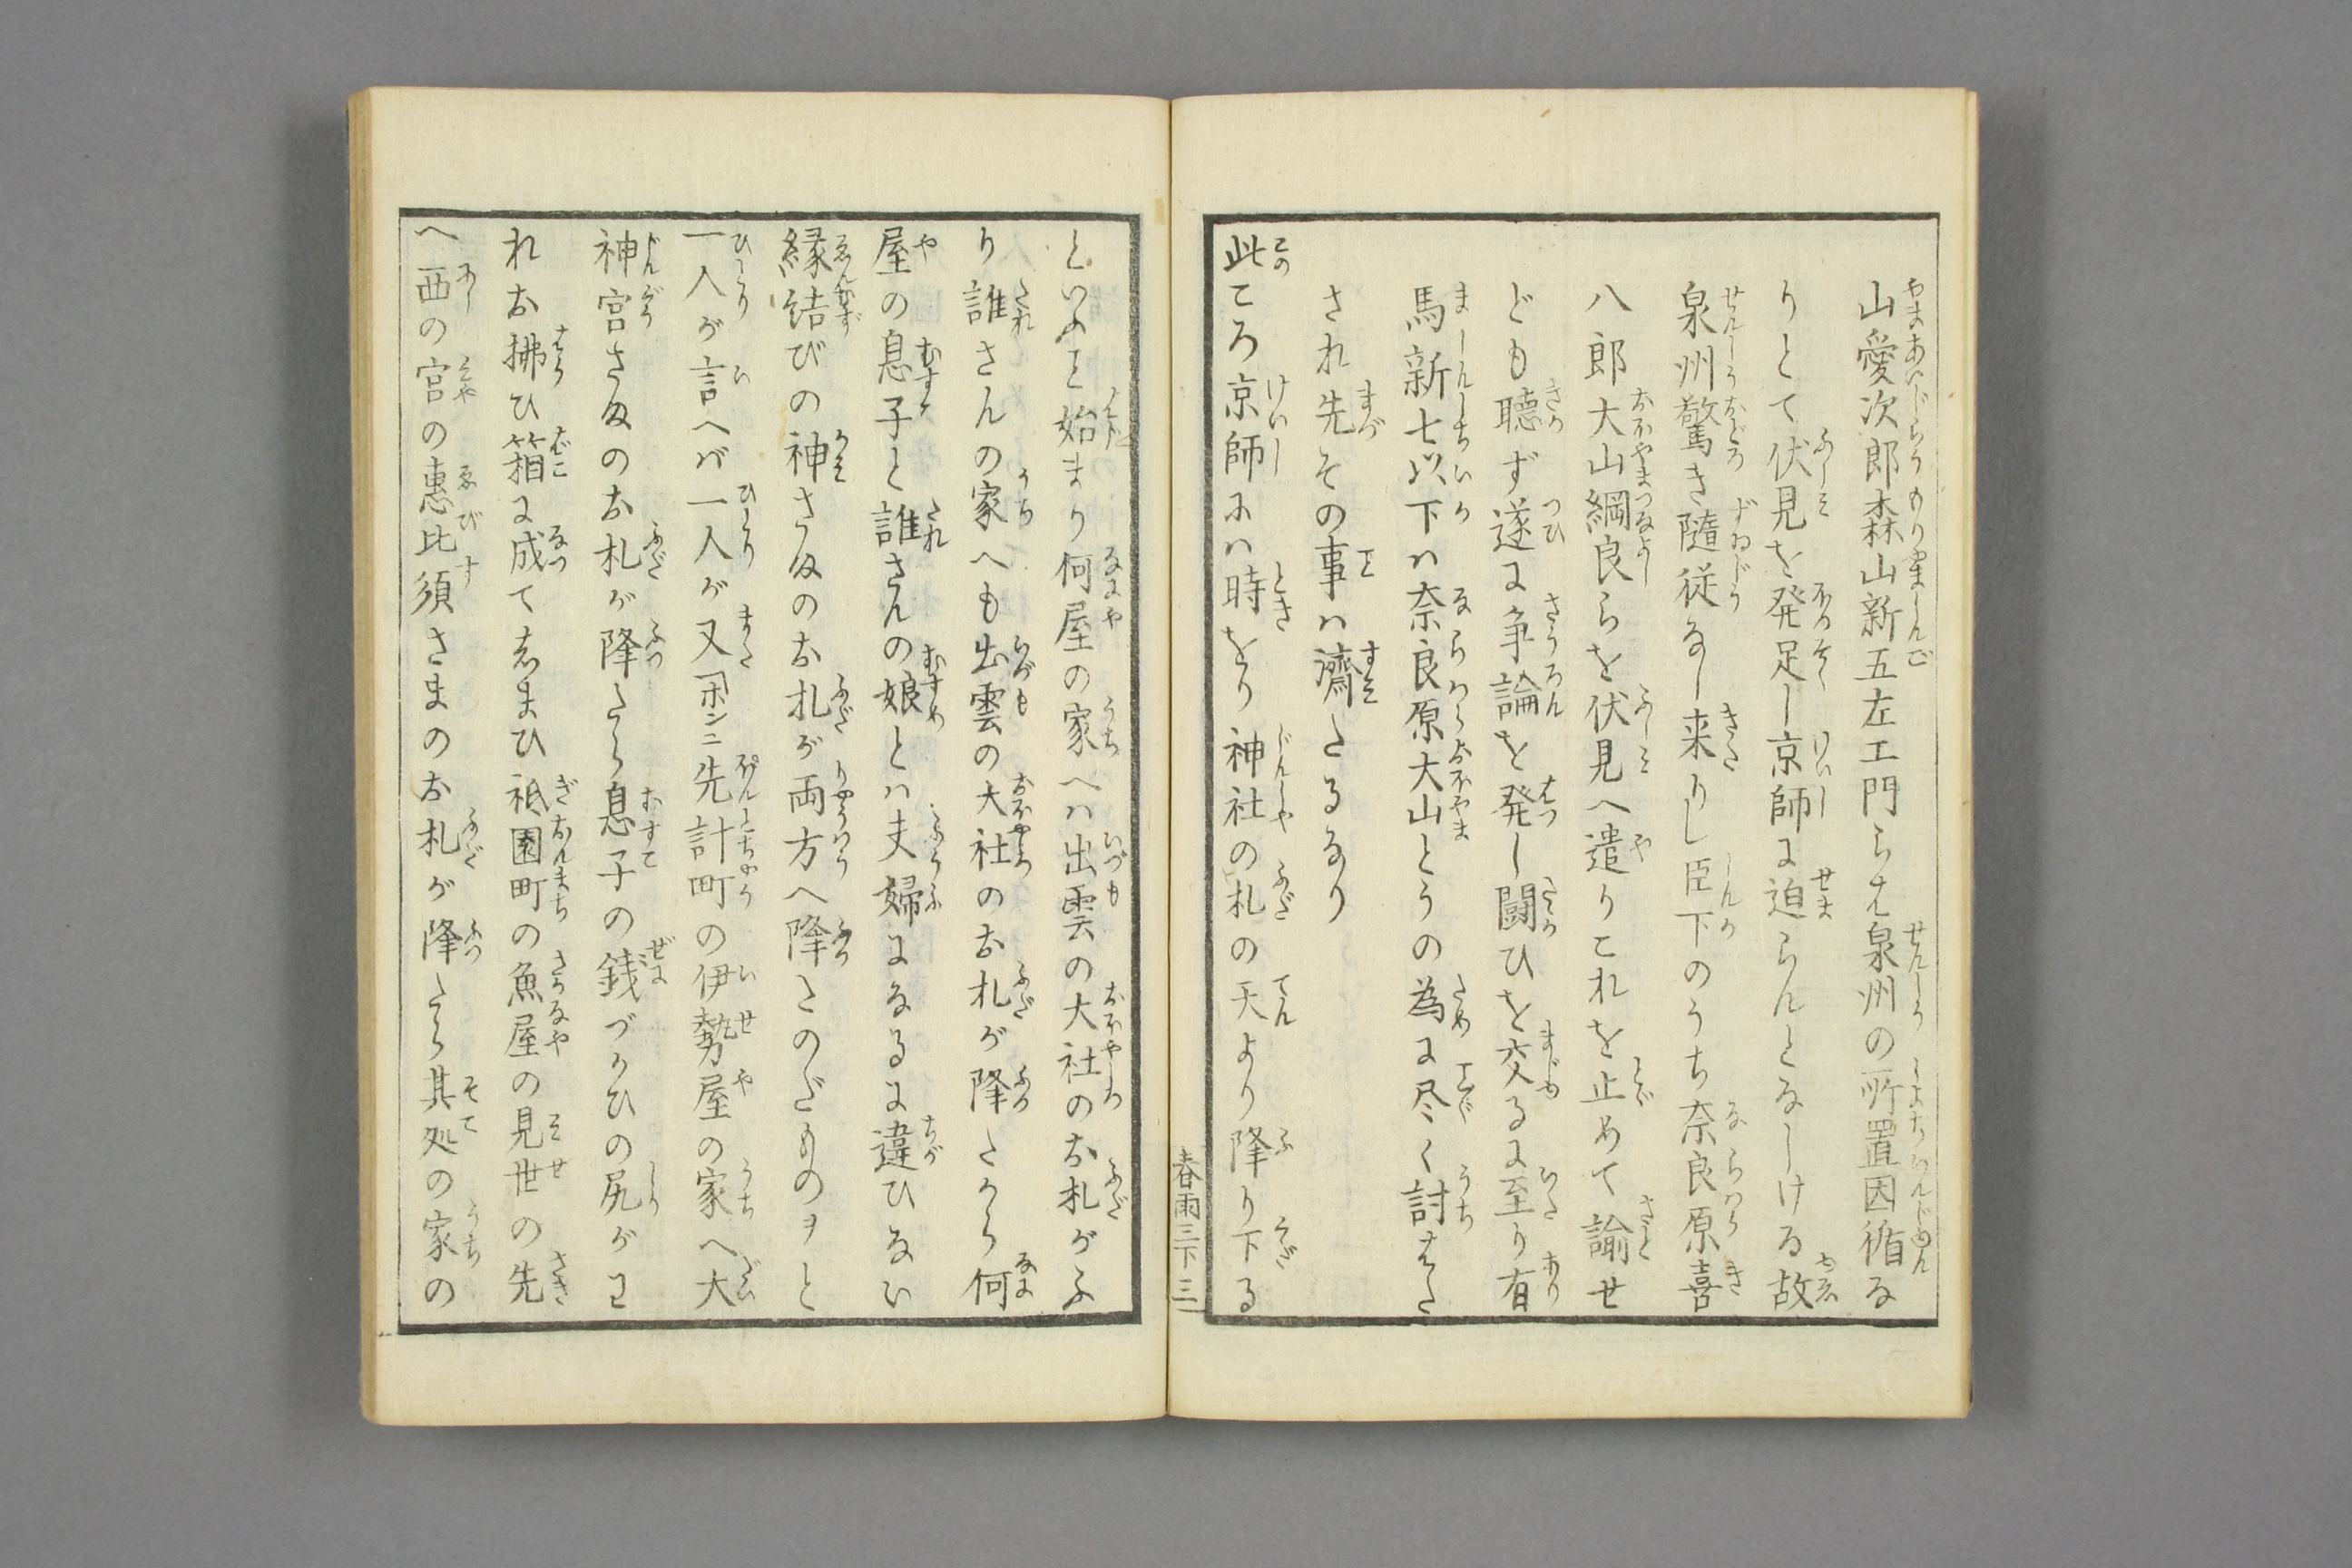 山愛次郎森山新五左エ門らは泉州の所置因循な
りとて伏見を発足し京師に迫らんとなしける故
泉州驚き随従なし来りし臣下のうち奈良原喜
八郎大山綱良らを伏見へ遣りこれを止めて諭せ
ども聴ず遂に争論を発し闘ひを交るに至り有
馬新七以下ハ奈良原大山とうの為に尽く討はた
され先その事ハ濟たるなり
此ころ京師にハ時をり神社の札の天より降り下る
春雨三下 三
といふこと始まり何屋の家へハ出雲の大社のお札がふ
り誰さんの家へも出雲の大社のお札が降たから何
屋の息子と誰さんの娘とハ夫婦になるに違ひない
縁結びの神さまのお札が両方へ降たのだものヲと
一人が言へバ一人が又ホンニ先計町の伊勢屋の家へ大
神宮さまのお札が降たら息子の銭づかひの尻がわ
れお拂ひ箱に成てしまひ祇園町の魚屋の見世の先
へ西の宮の惠比須さまのお札が降たら其処の家の